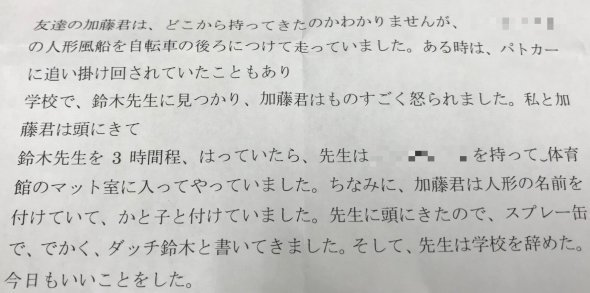 友達の加藤君は、どこから持ってきたのかわかりませんが、
の人形風船を自転車の後ろにつけて走っていました。ある時は、パトカー
に追い掛け回されていたこともあり
学校で、鈴木先生に見つかり、加藤君はものすごく怒られました。私と加
藤君は頭にきて
鈴木先生を 3 時間程、はっていたら、先生は を持って、体育
館のマット室に入ってやっていました。ちなみに、加藤君は人形の名前を
付けていて、かと子と付けていました。先生に頭にきたので、スプレー缶
で、でかく、ダッチ鈴木と書いてきました。そして、先生は学校を辞めた。
今日もいいことをした。